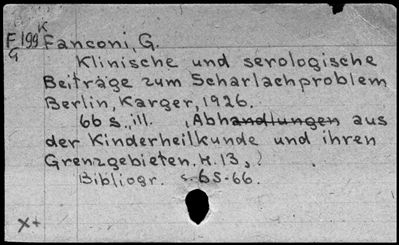 K
F 199 Fanconi, G.
G
Klinische und serologische
Beiträge zum Scharlachproblem
Berlin, Karger, 1926.
66 s., ill. (Abhandlungen aus
der Kinderheilkunde und ihren
Grenzgebieten. H. 13,)
Bibliogr. s. 65-66.
X+